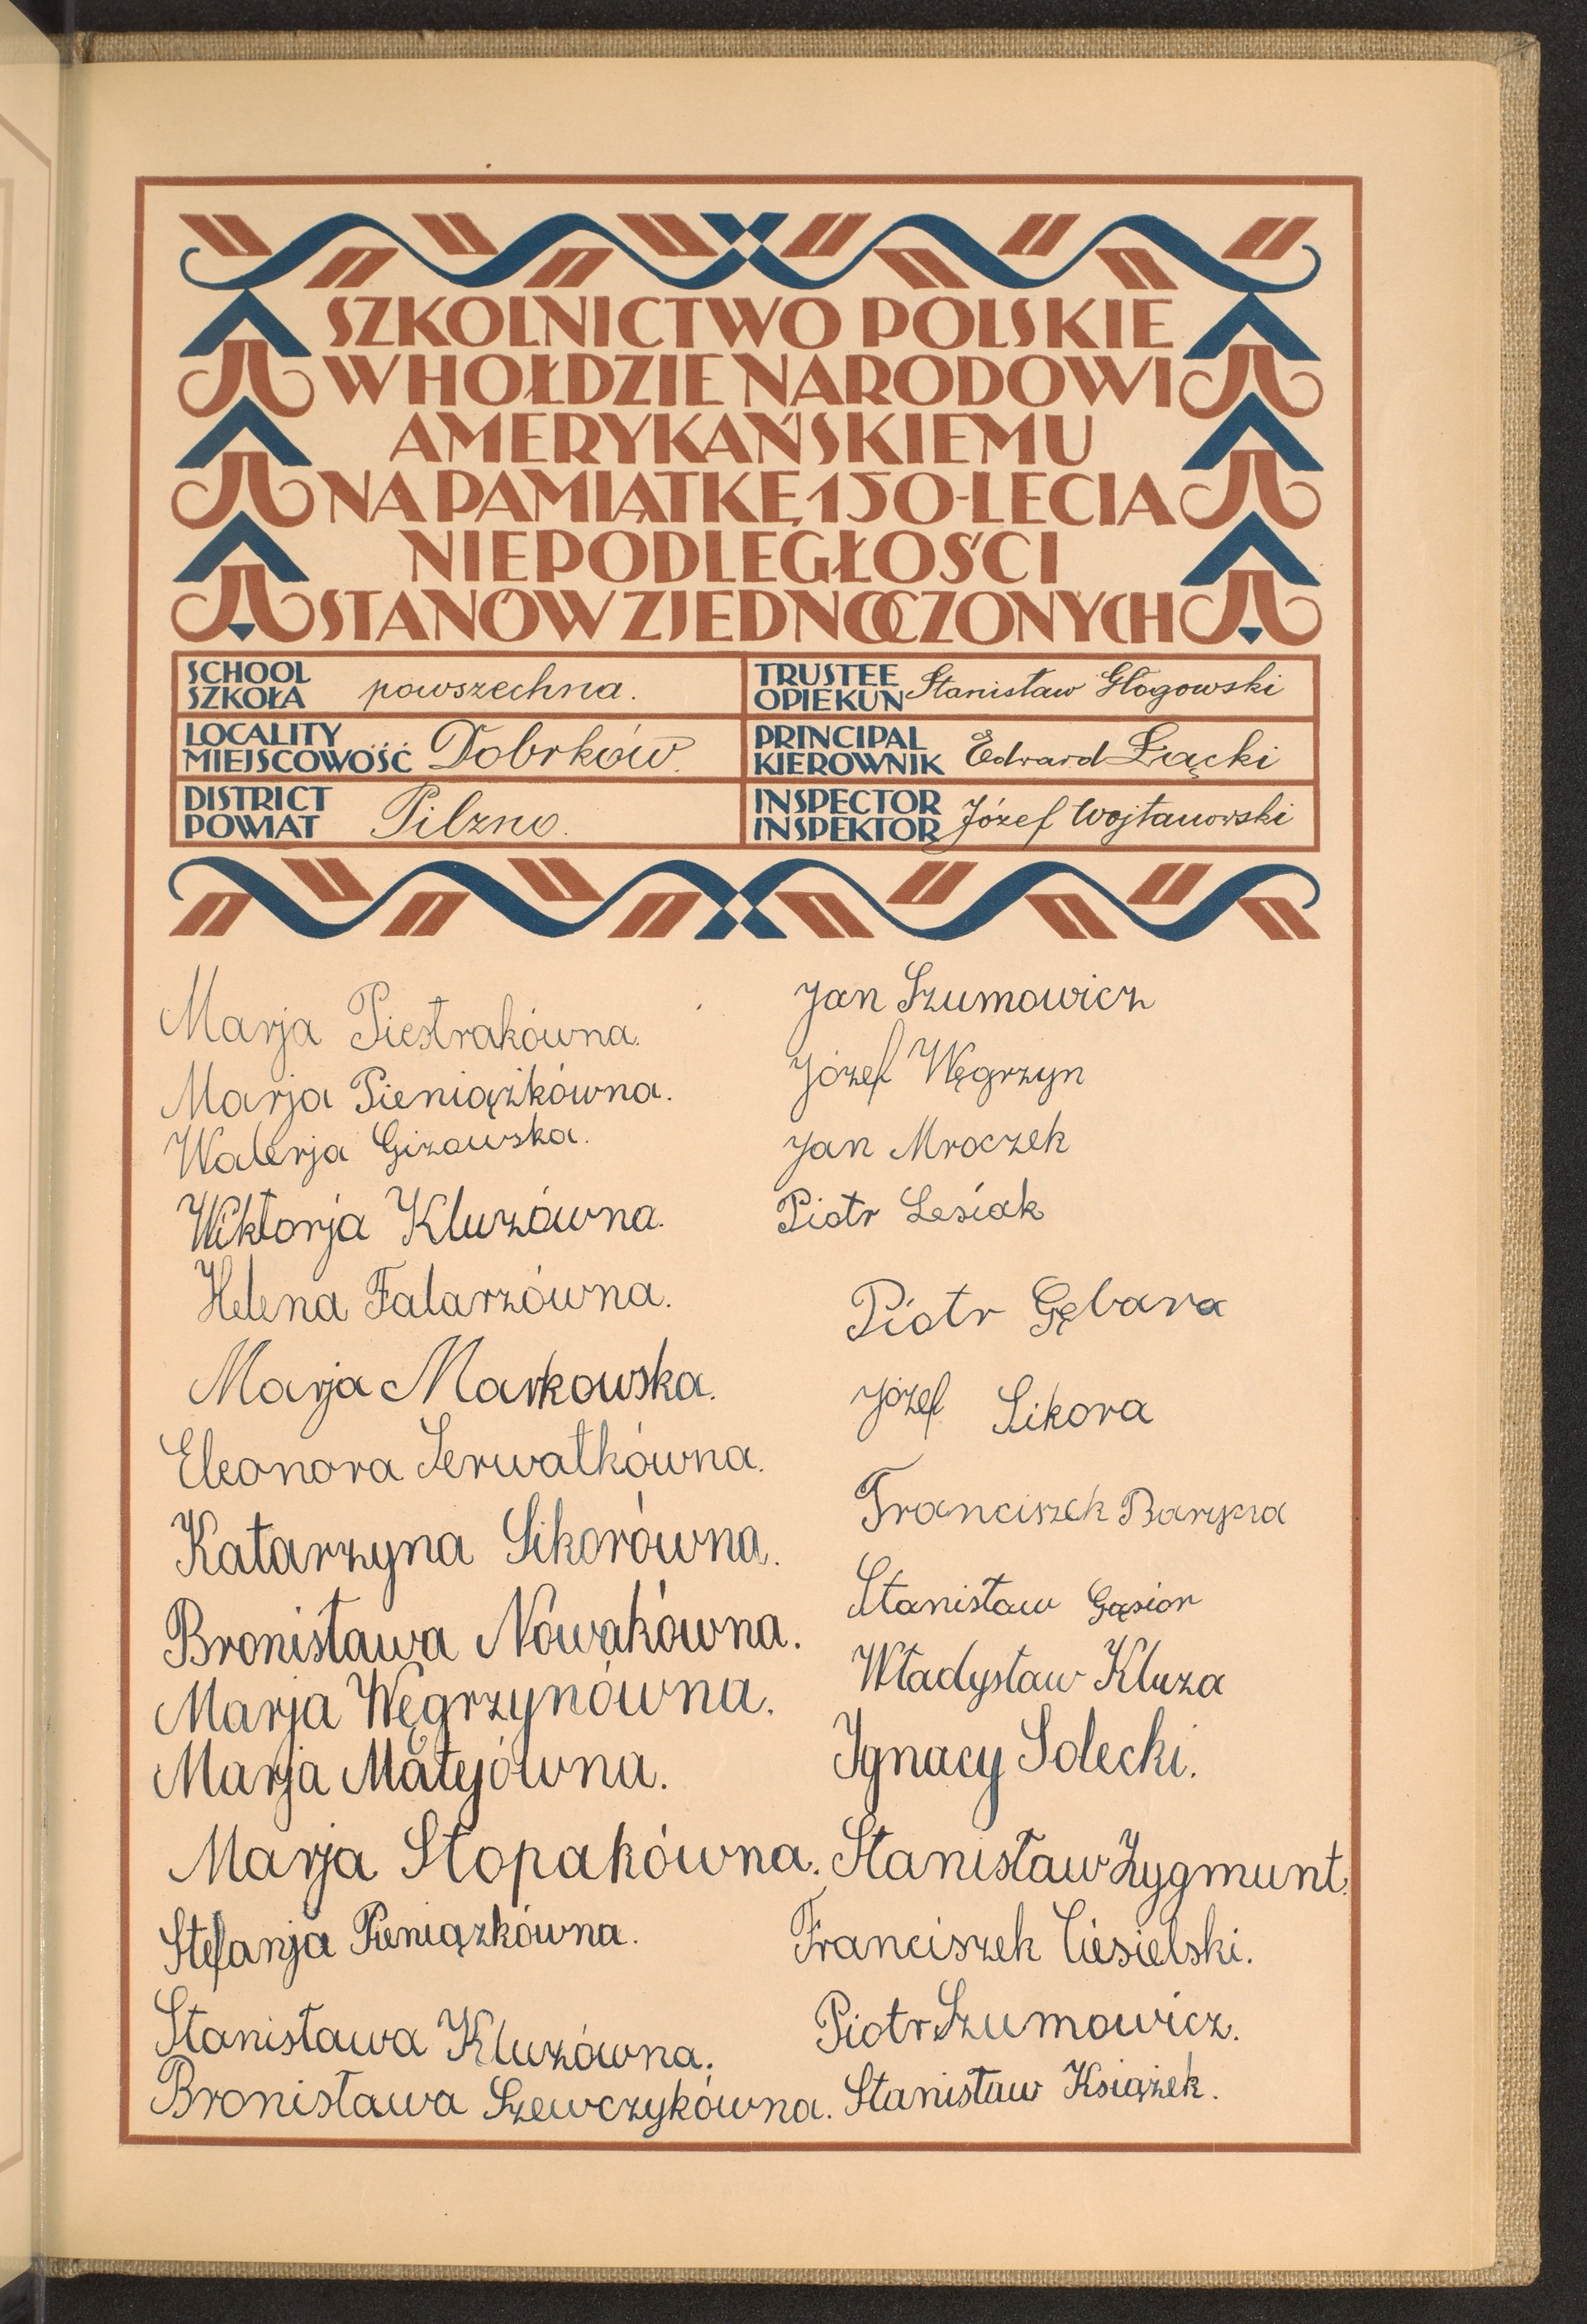 SZKOLNICTWO POLSKIE
W HOŁDZIE NARODOWI
AMERYKAŃSKIEMU
NA PAMIĄTKĘ 150-LECIA
NIEPODLEGŁOŚCI
STANÓW ZJEDNOCZONYCH
SCHOOL
SZKOŁA powszechna.
TRUSTEE
OPIEKUN Stanisław Głogowski
LOCALITY
MIEJSCOWOŚĆ Dobrków.
PRINCIPAL
KIEROWNIK Edward Łącki
DISTRICT
POWIAT Pilzno.
INSPECTOR
INSPEKTOR Józef Wojtanowski
Marja Piestrakówna.
Marja Pieniążkówna.
Walerja Gizowska.
Wiktorja Kluzówna.
Helena Falarzówna.
Marja Markowska.
Eleonora Serwatkówna.
Katarzyna Sikorówna.
Bronisława Nowakówna.
Marja Węgrzynówna.
Marja Matejówna.
Marja Stopakówna.
Stefanja Pieniązkówna.
Stanisława Kluzówna.
Bronisława Szewczykówna.
Jan Szumowicz
Józef Węgrzyn
Jan Mroczek
Piotr Lesiak
Piotr Gębara
Józef Sikora
Franciszek
Stanisław Gąsior
Władysław Kluza
Ignacy Solecki.
Stanisław Zygmunt.
Franciszek Ciesielski.
Piotr Szumowicz.
Stanisław Książek.